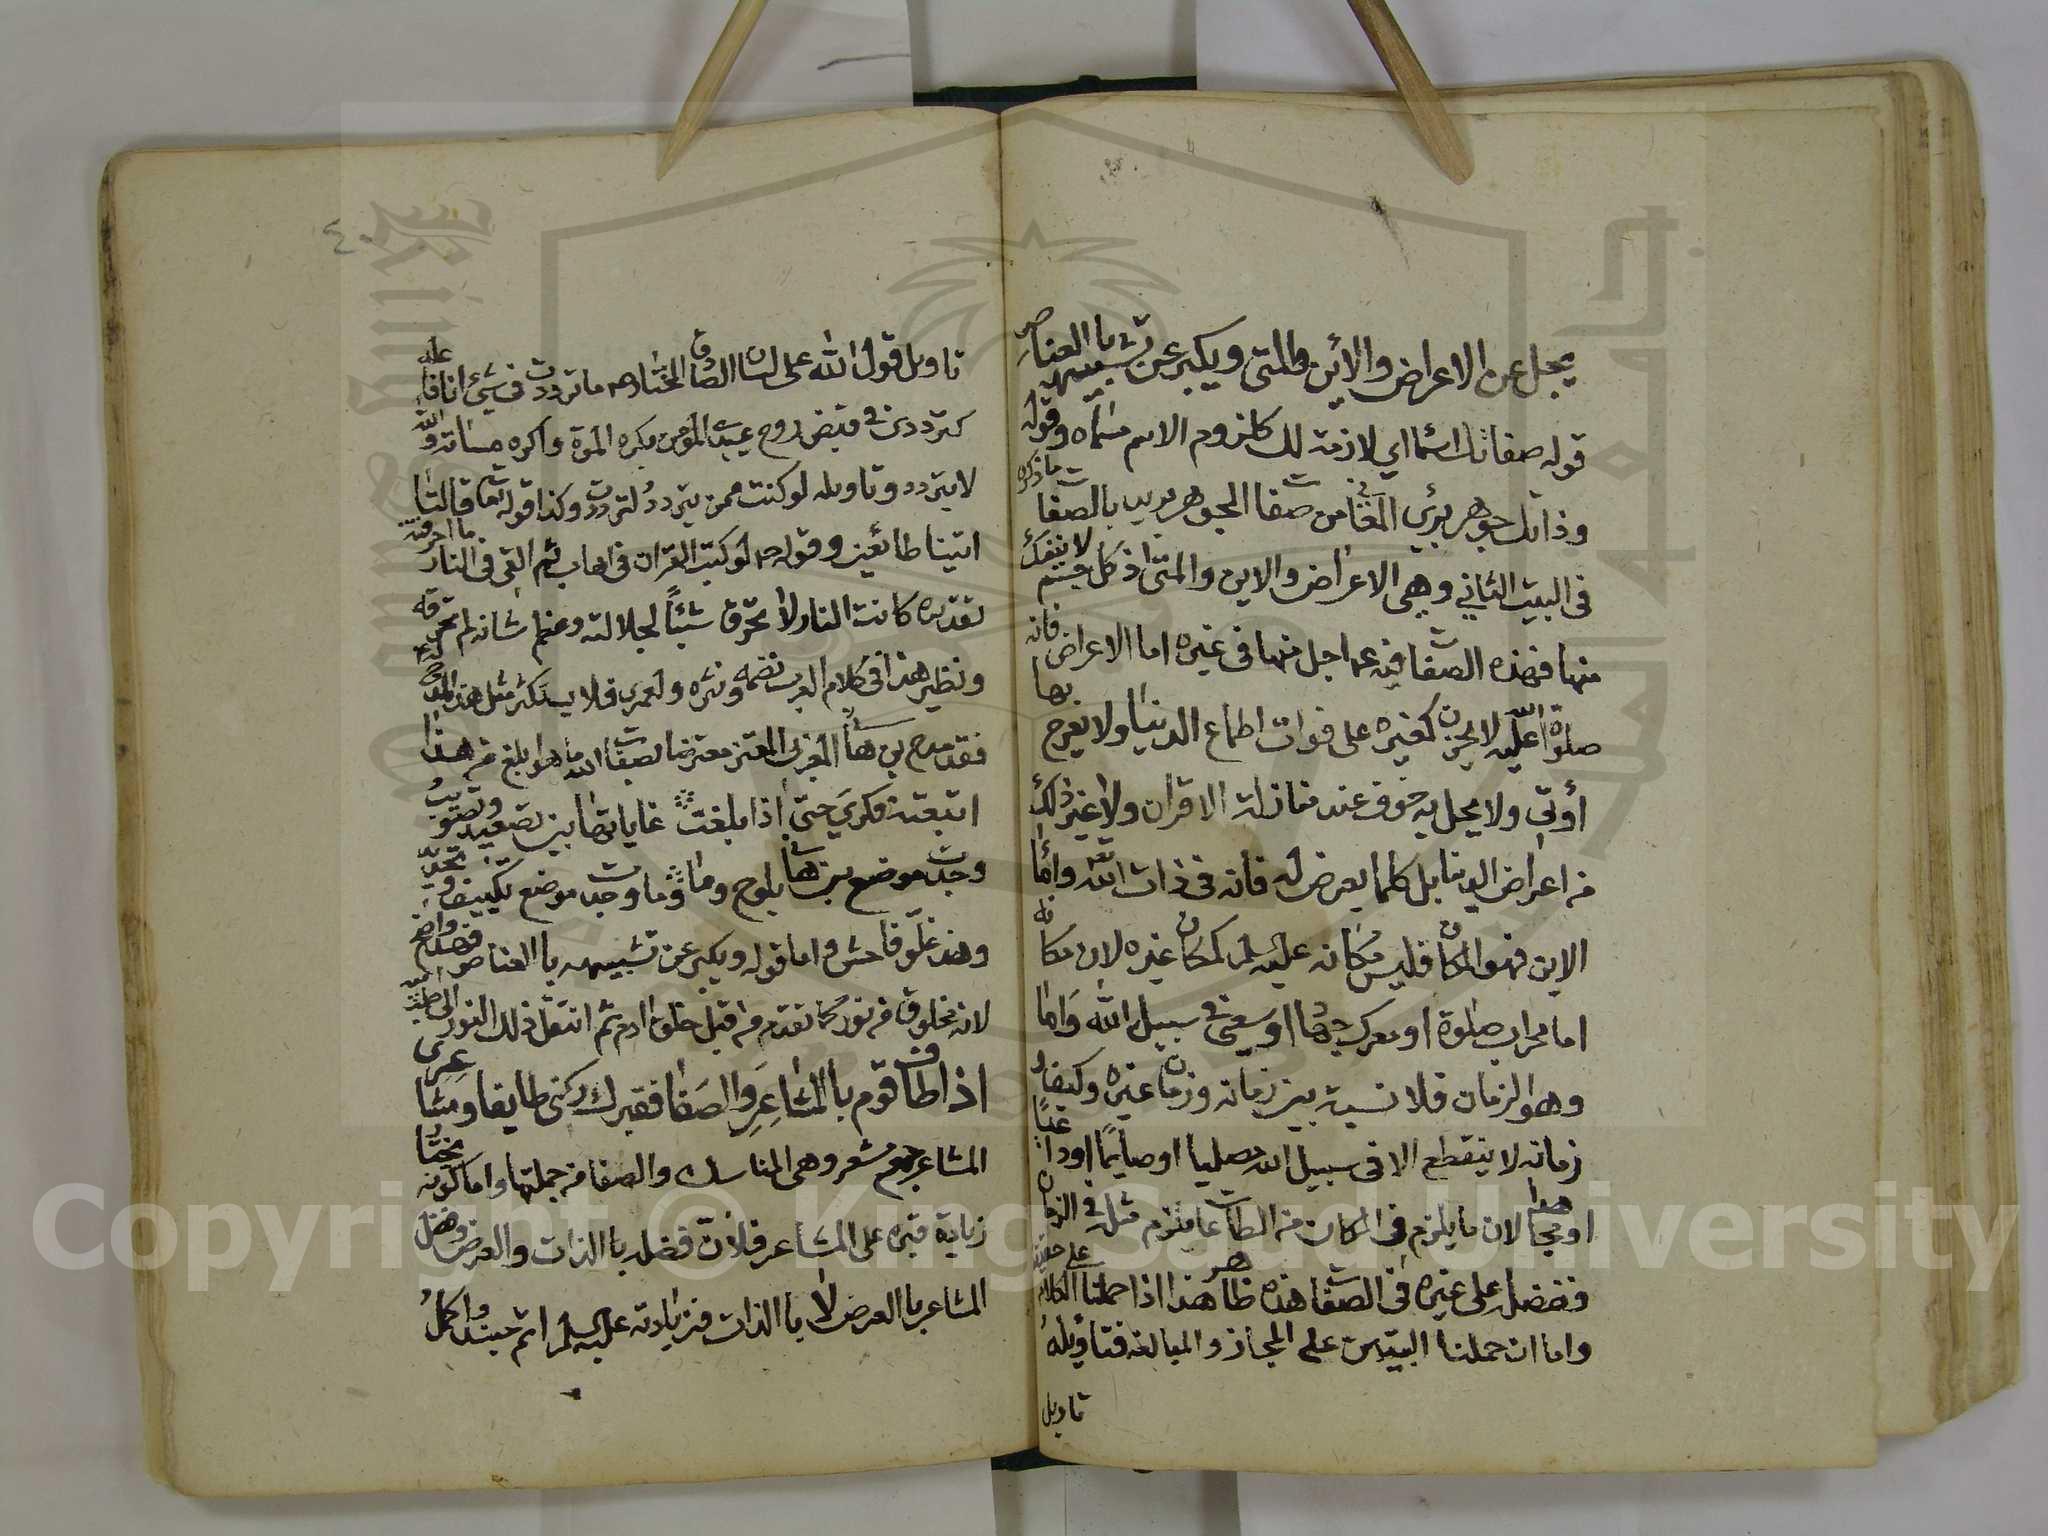 يجل عن الاعراض والأين والمتى ويكبر عن تشبيهه با العناصر
قوله صفاتك اسما اي لازمة لك كلزوم الاسم مسماه وقوله
وذاتك جوهر بريء المعاني من صفات الجوهر يريد بالصفات ما ذكره
في البيت الثاني وهي الاعراض والاين والمتى اذ كل جسم لا ينفك
منها فهذه الصفات فيه عما اجل منها في غيره اما الاعراض فانه
صلوة الله عليه لا يحزن كغيره على فوات اطماع الدنيا ولا يفرح بها
أوتي ولا يحل به خوف عند منازلة الاقران ولا غير ذلك
من اعراض الدنيا بل كلما يعرض له فانه في ذات الله تعه وأما
الاين فهو المكان فليس مكانه عليه السلم كمكان غيره لان مكانه
اما محراب صلوة او معرك جهاد او سعي في سبيل الله واما
وهو الزمان فلا نسبة بين زمانه وزمان غيره وكيف و
زمانه لا ينقطع الا في سبيل الله مصليا او صايما او داعيا
او مجاهدا لان ما يلزم في المكان من الطاعات يلزم مثله في الزمان
ففضله على غيره في الصفات هذه ظاهر هذا اذا حملنا الكلام على حقيقته
واما ان حملنا البيتين على المجاز والمبالغة فتاويله
تاويل
٤٠
تاويل قول الله على لسان الصادق المختار صم ما ترددت في شيء انا فاعله
كترددي في قبض روح عبدي المؤمن يكره الموت واكره مساته والله
لا يتردد وتاويله لو كنت ممن يتردد لترددت وكذا قوله تعه قالتا
اتينا طائعين وقوله صم لو كتب القران في اهاب ثم القي في النار ما احرقته
تقديره كانت النار لا تحرق شيئا لجلالته وعظم شانه لم تحرقه
ونظير هذا في كلام العرب نظمه ونثره ولعمري فلا يستكثر مثل هذا المدح
فقد مدح بن هانئ المغربي المعتز معترضا لصفات الله ما هو ابلغ من هذا
اتبعته فكري حتى اذا بلغت غاياتها بين تصعيد وتصويب
وجدت موضع برهان يلوح وما وما وجدت موضع تكييف وتحديد
وهذ غلو فاحش واما قوله ويكبر عن تشبيهه با العناصر فهذا واضح
لانه مخلوق من نور كما تقدم من قبل خلق ادم ثم انتقل ذلك النور الى
اذا طاف قوم با المشاعر والصفا فقبرك ركني طايفا ومشاعري
المشاعر جمع مشعر وهي المناسك والصفا من جملتها واما كونه مختار
زيارة قبره على المشاعر فلأن فضله با الذات والعرض وفضل
المشاعر با العرض لا با الذات فزيارته عليه السلم اتم حينئذ واكمل
Copyright © King Saud University